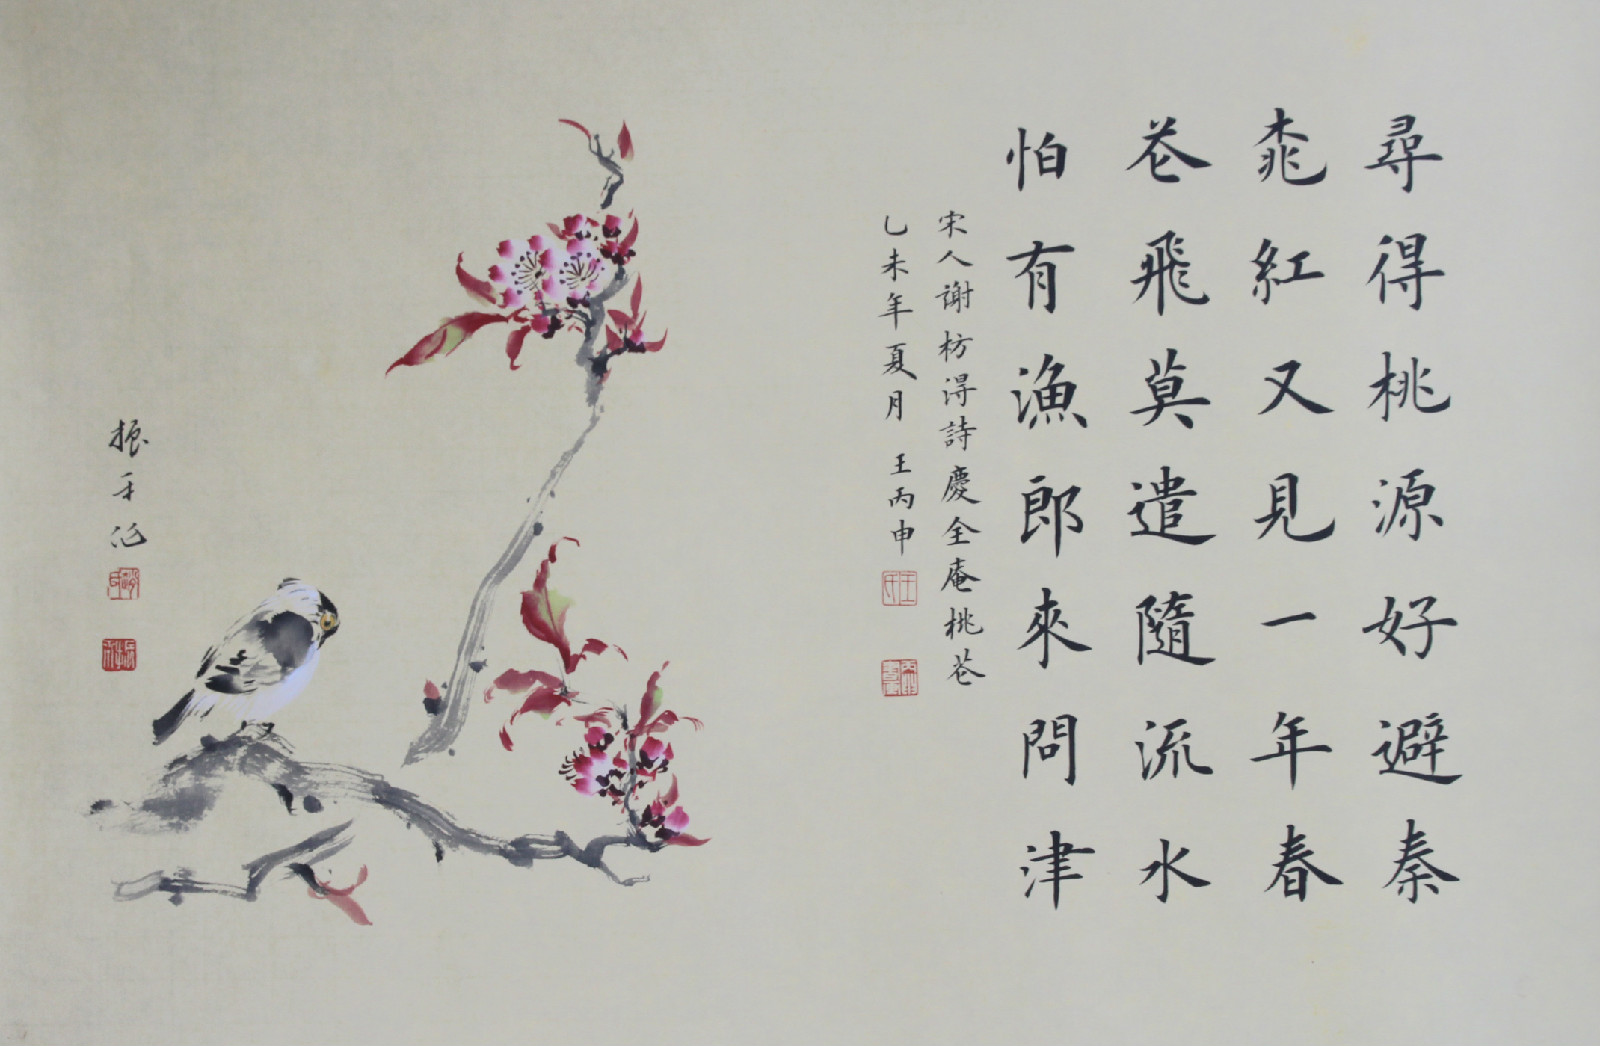 尋得桃源好避秦
桃紅又見一年春
花飛莫遣隨流水
怕有漁郎來問津
宋人謝枋淂詩慶全庵桃花
乙未年夏月 王丙申
振